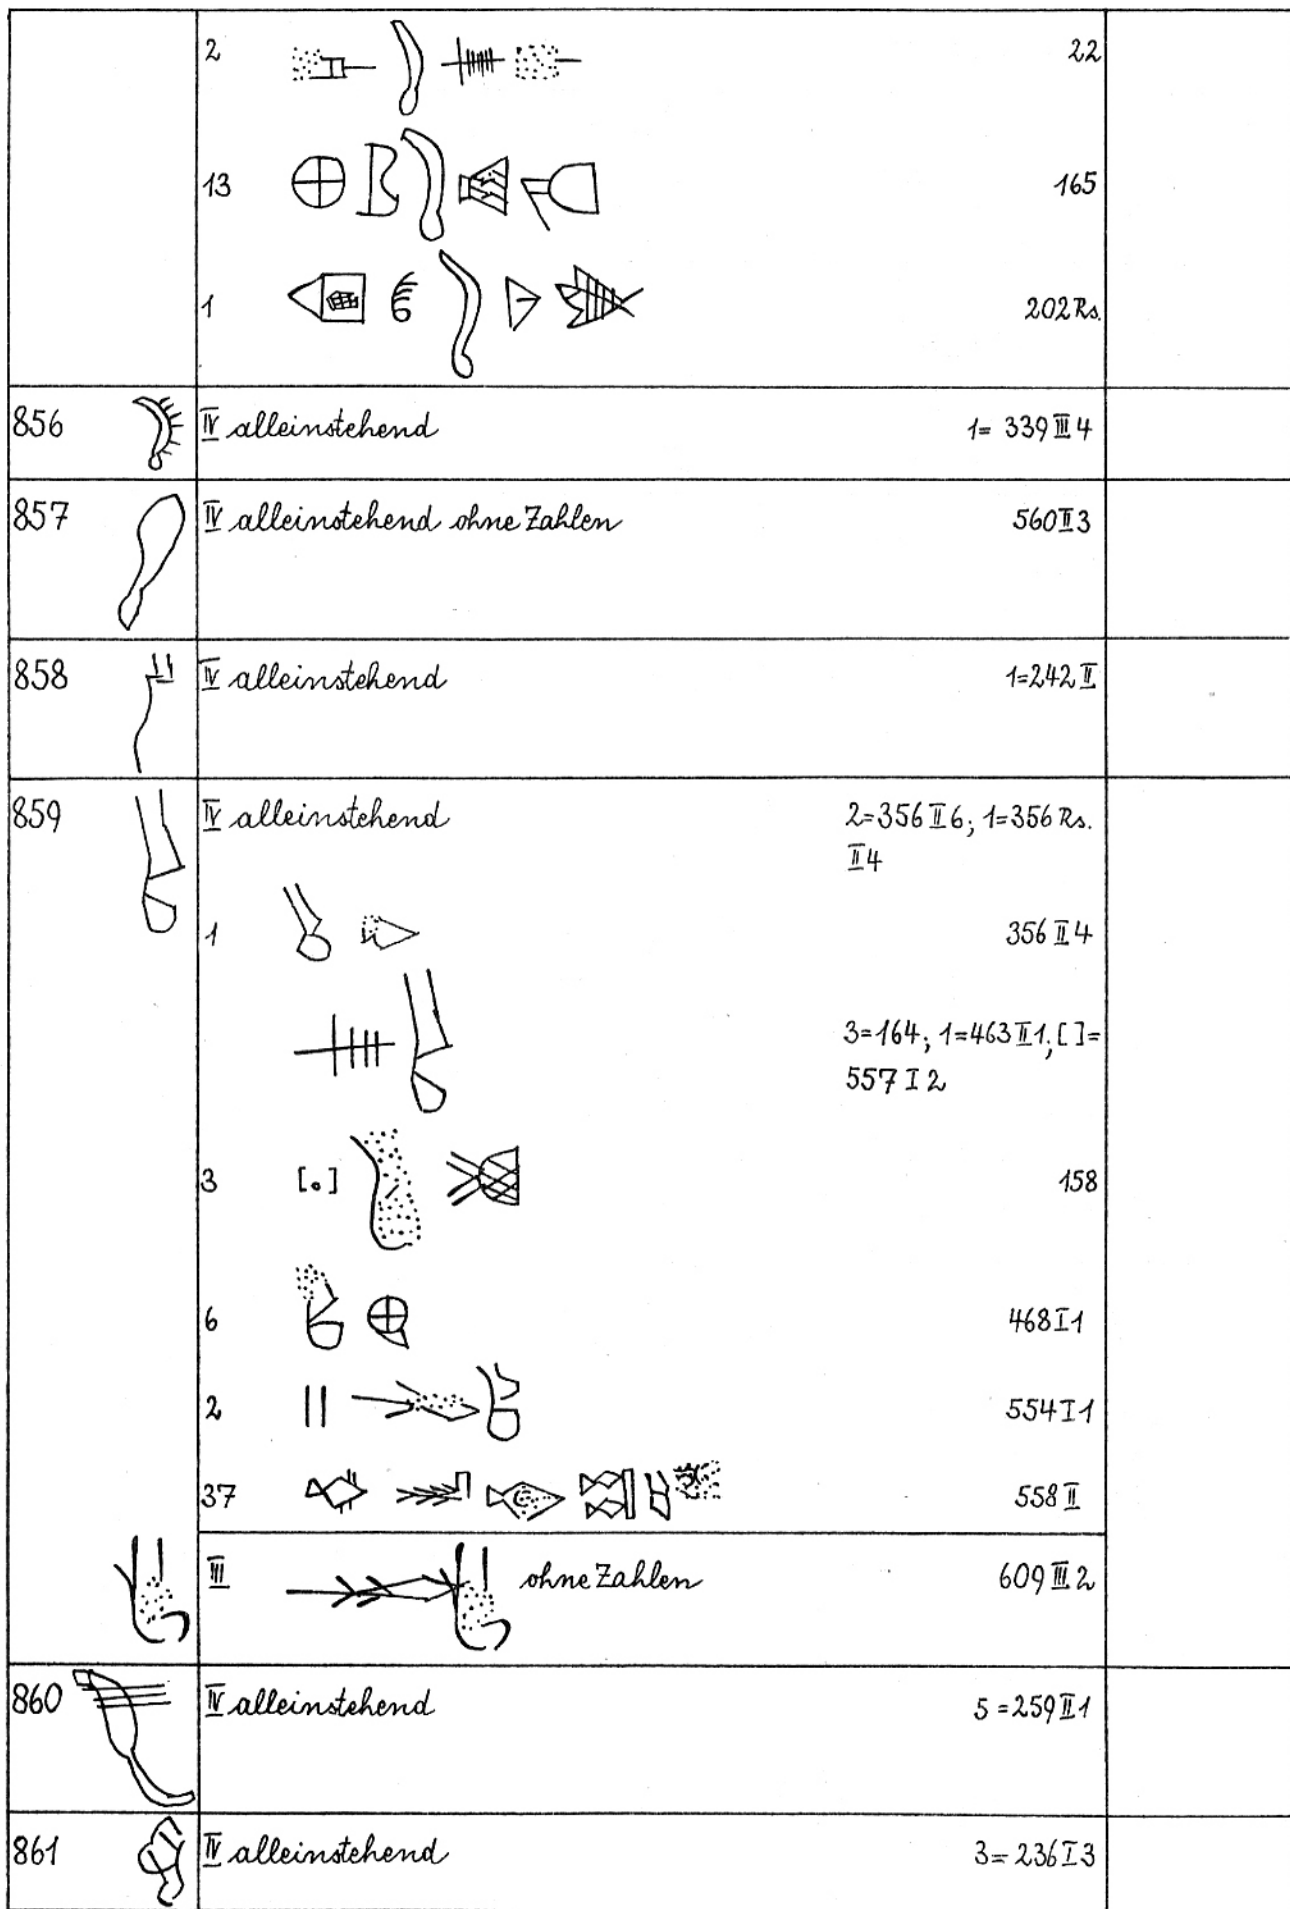 2 22
13 165
1 202 Rs.
856 IV alleinstehend 1= 339 III 4
857 IV alleinstehend ohne Zahlen 560 II 3
858 IV alleinstehend 1=242 II
859 IV alleinstehend 2=356 II 6; 1=356 Rs.
II 4
1 356 II 4
3=164; 1=463 II 1; [ ]=
557 I 2
3 [∘] 158
6 468 I 1
2 554 I 1
37 558 II
III ohne Zahlen 609 III 2
860 IV alleinstehend 5 =259 II 1
861 IV alleinstehend 3= 236 I 3